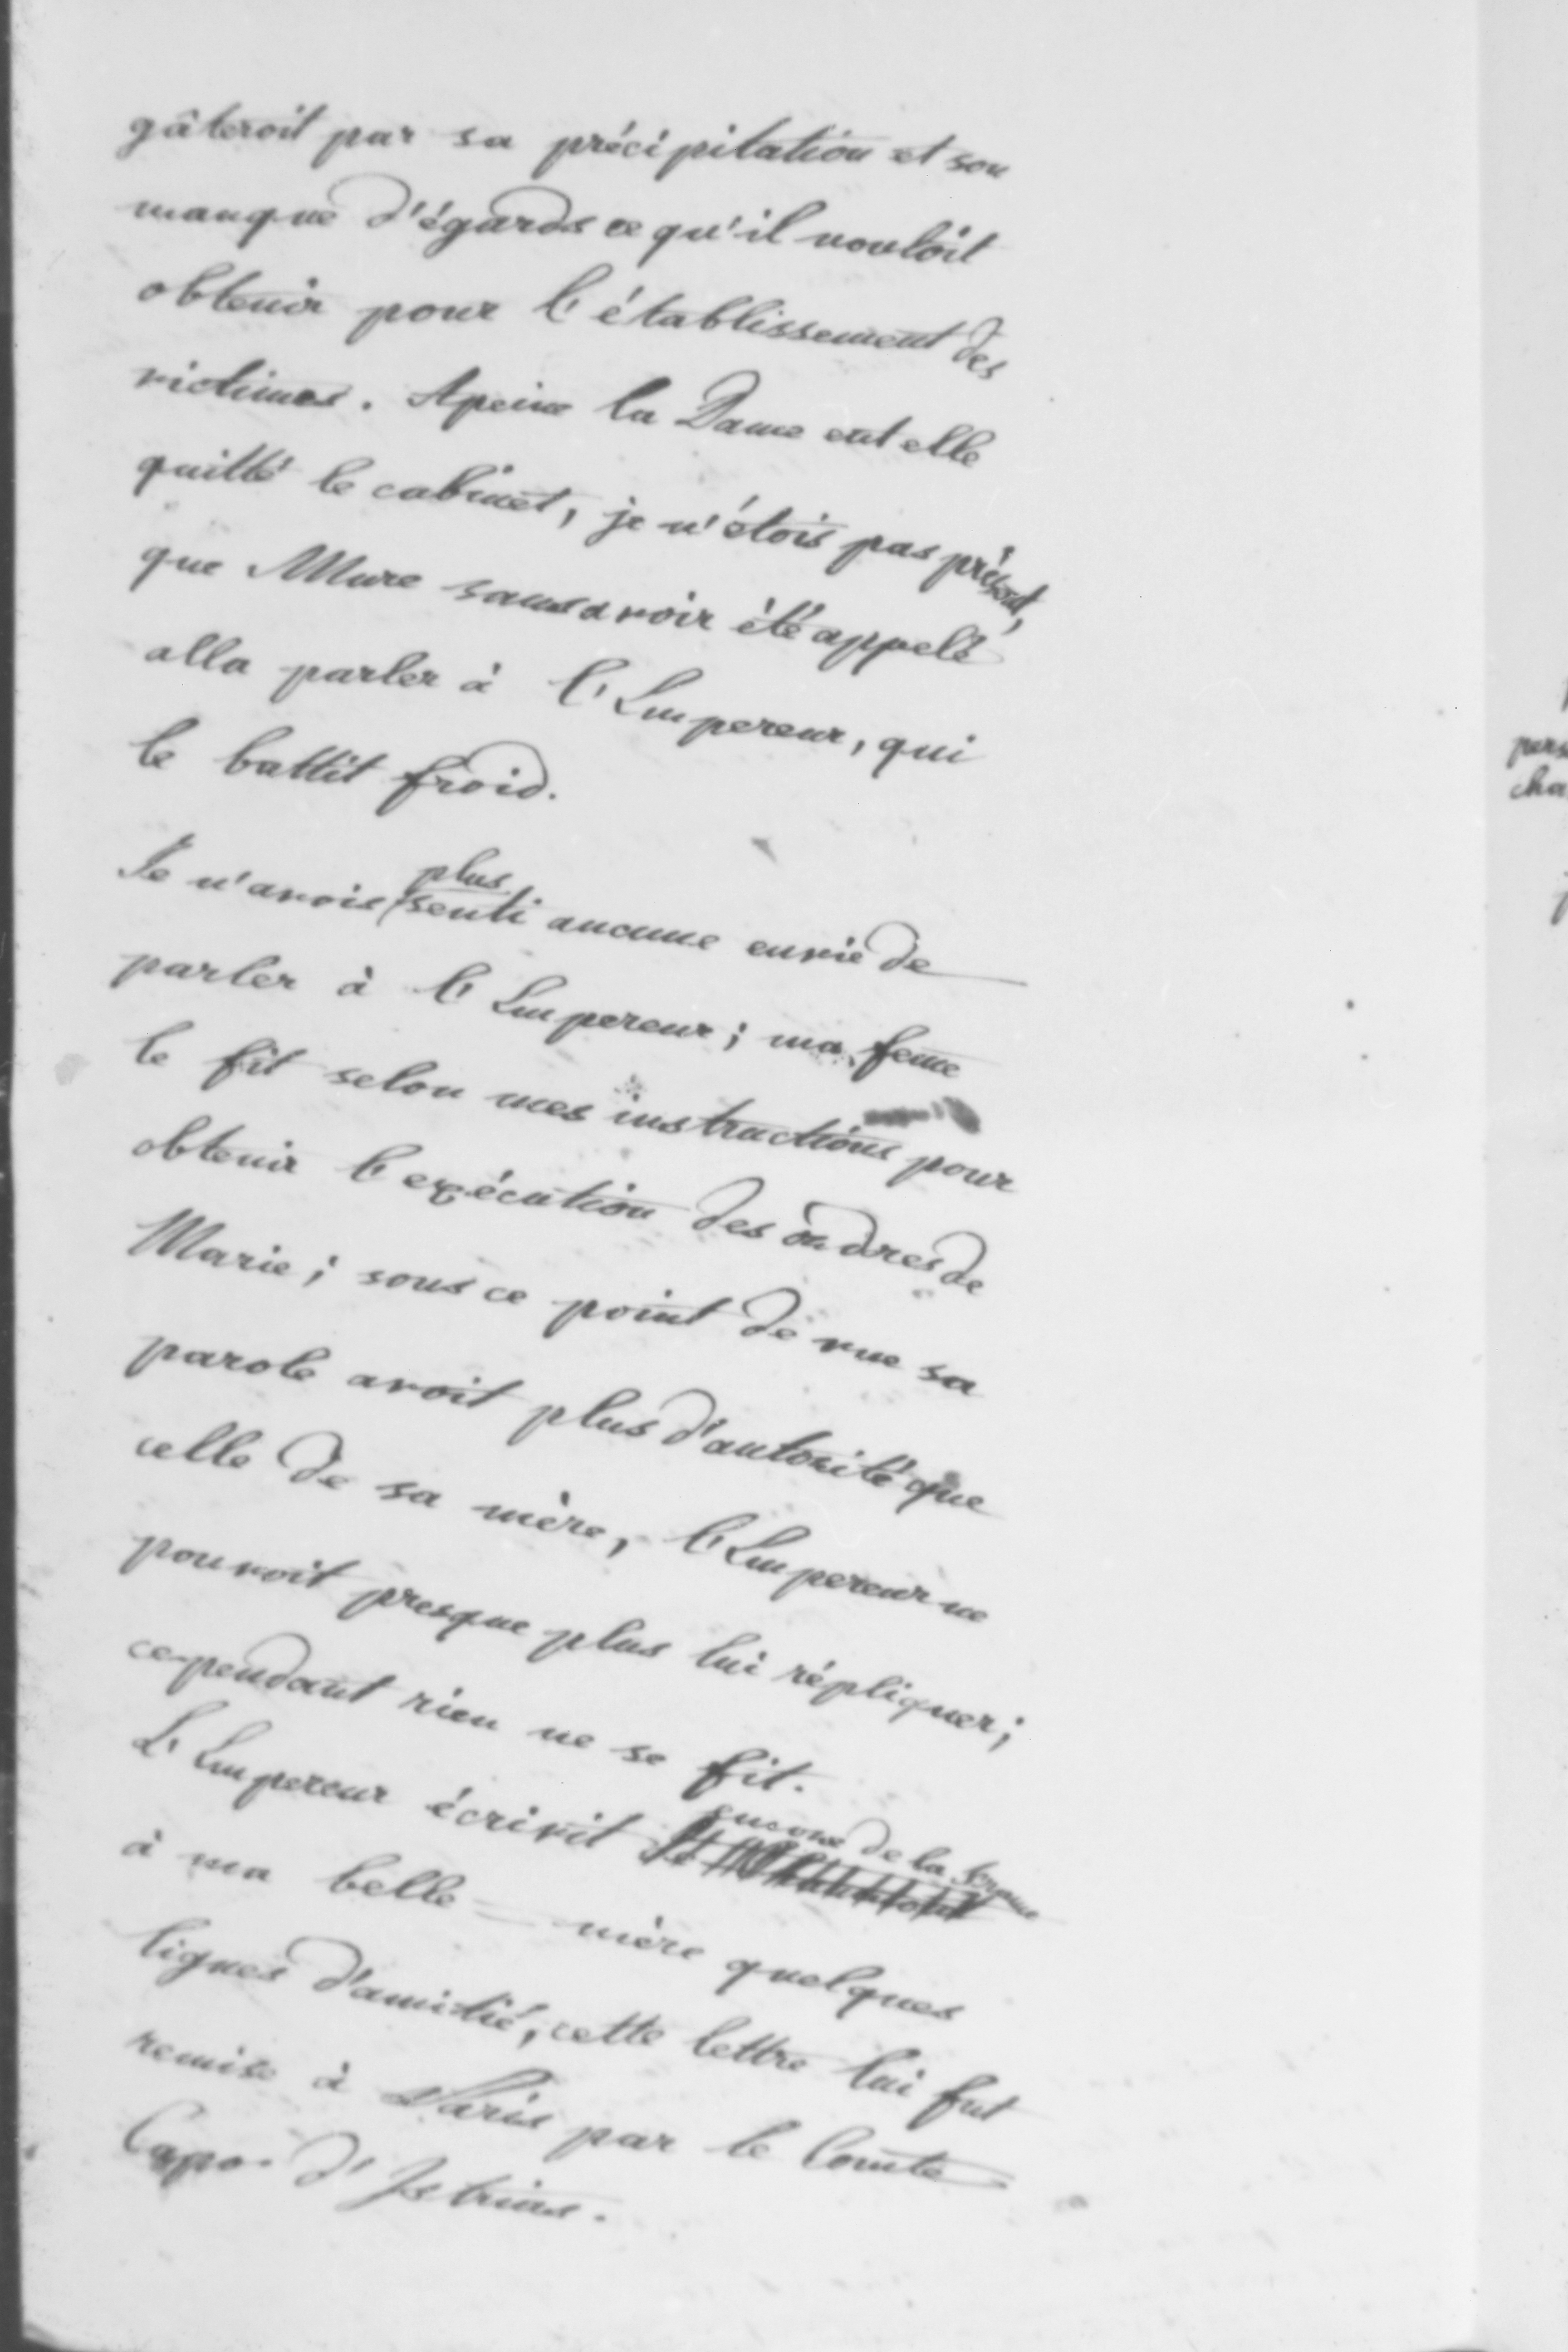 gâteroit par sa précipitation et son
manque d'égards ce qu'il vouloit
obtenir pour l'établissement des
victimes. Apeine la Dame eut elle
quitté le cabinet, je n'étois pas présent,
que Mure sans avoir été appelé
alla parler à l'Empereur, qui
le battit froid.
Je n'avois plus senti aucune envie de
parler à l'Empereur; ma feme
le fit selon mes instructions pour
obtenir l'exécution des ordres de
Marie; sous ce point de vue sa
parole avoit plus d'autorité que
celle de sa mère, l'Empereur ne
pouvoit presque plus lui répliquer;
cependant rien ne se fit.
L'Empereur écrivit encore de la
à ma belle-mère quelques
lignes d'amitié, cette lettre lui fut
remise à Paris par le Comte
Capo d'Istrias.
pers
cha